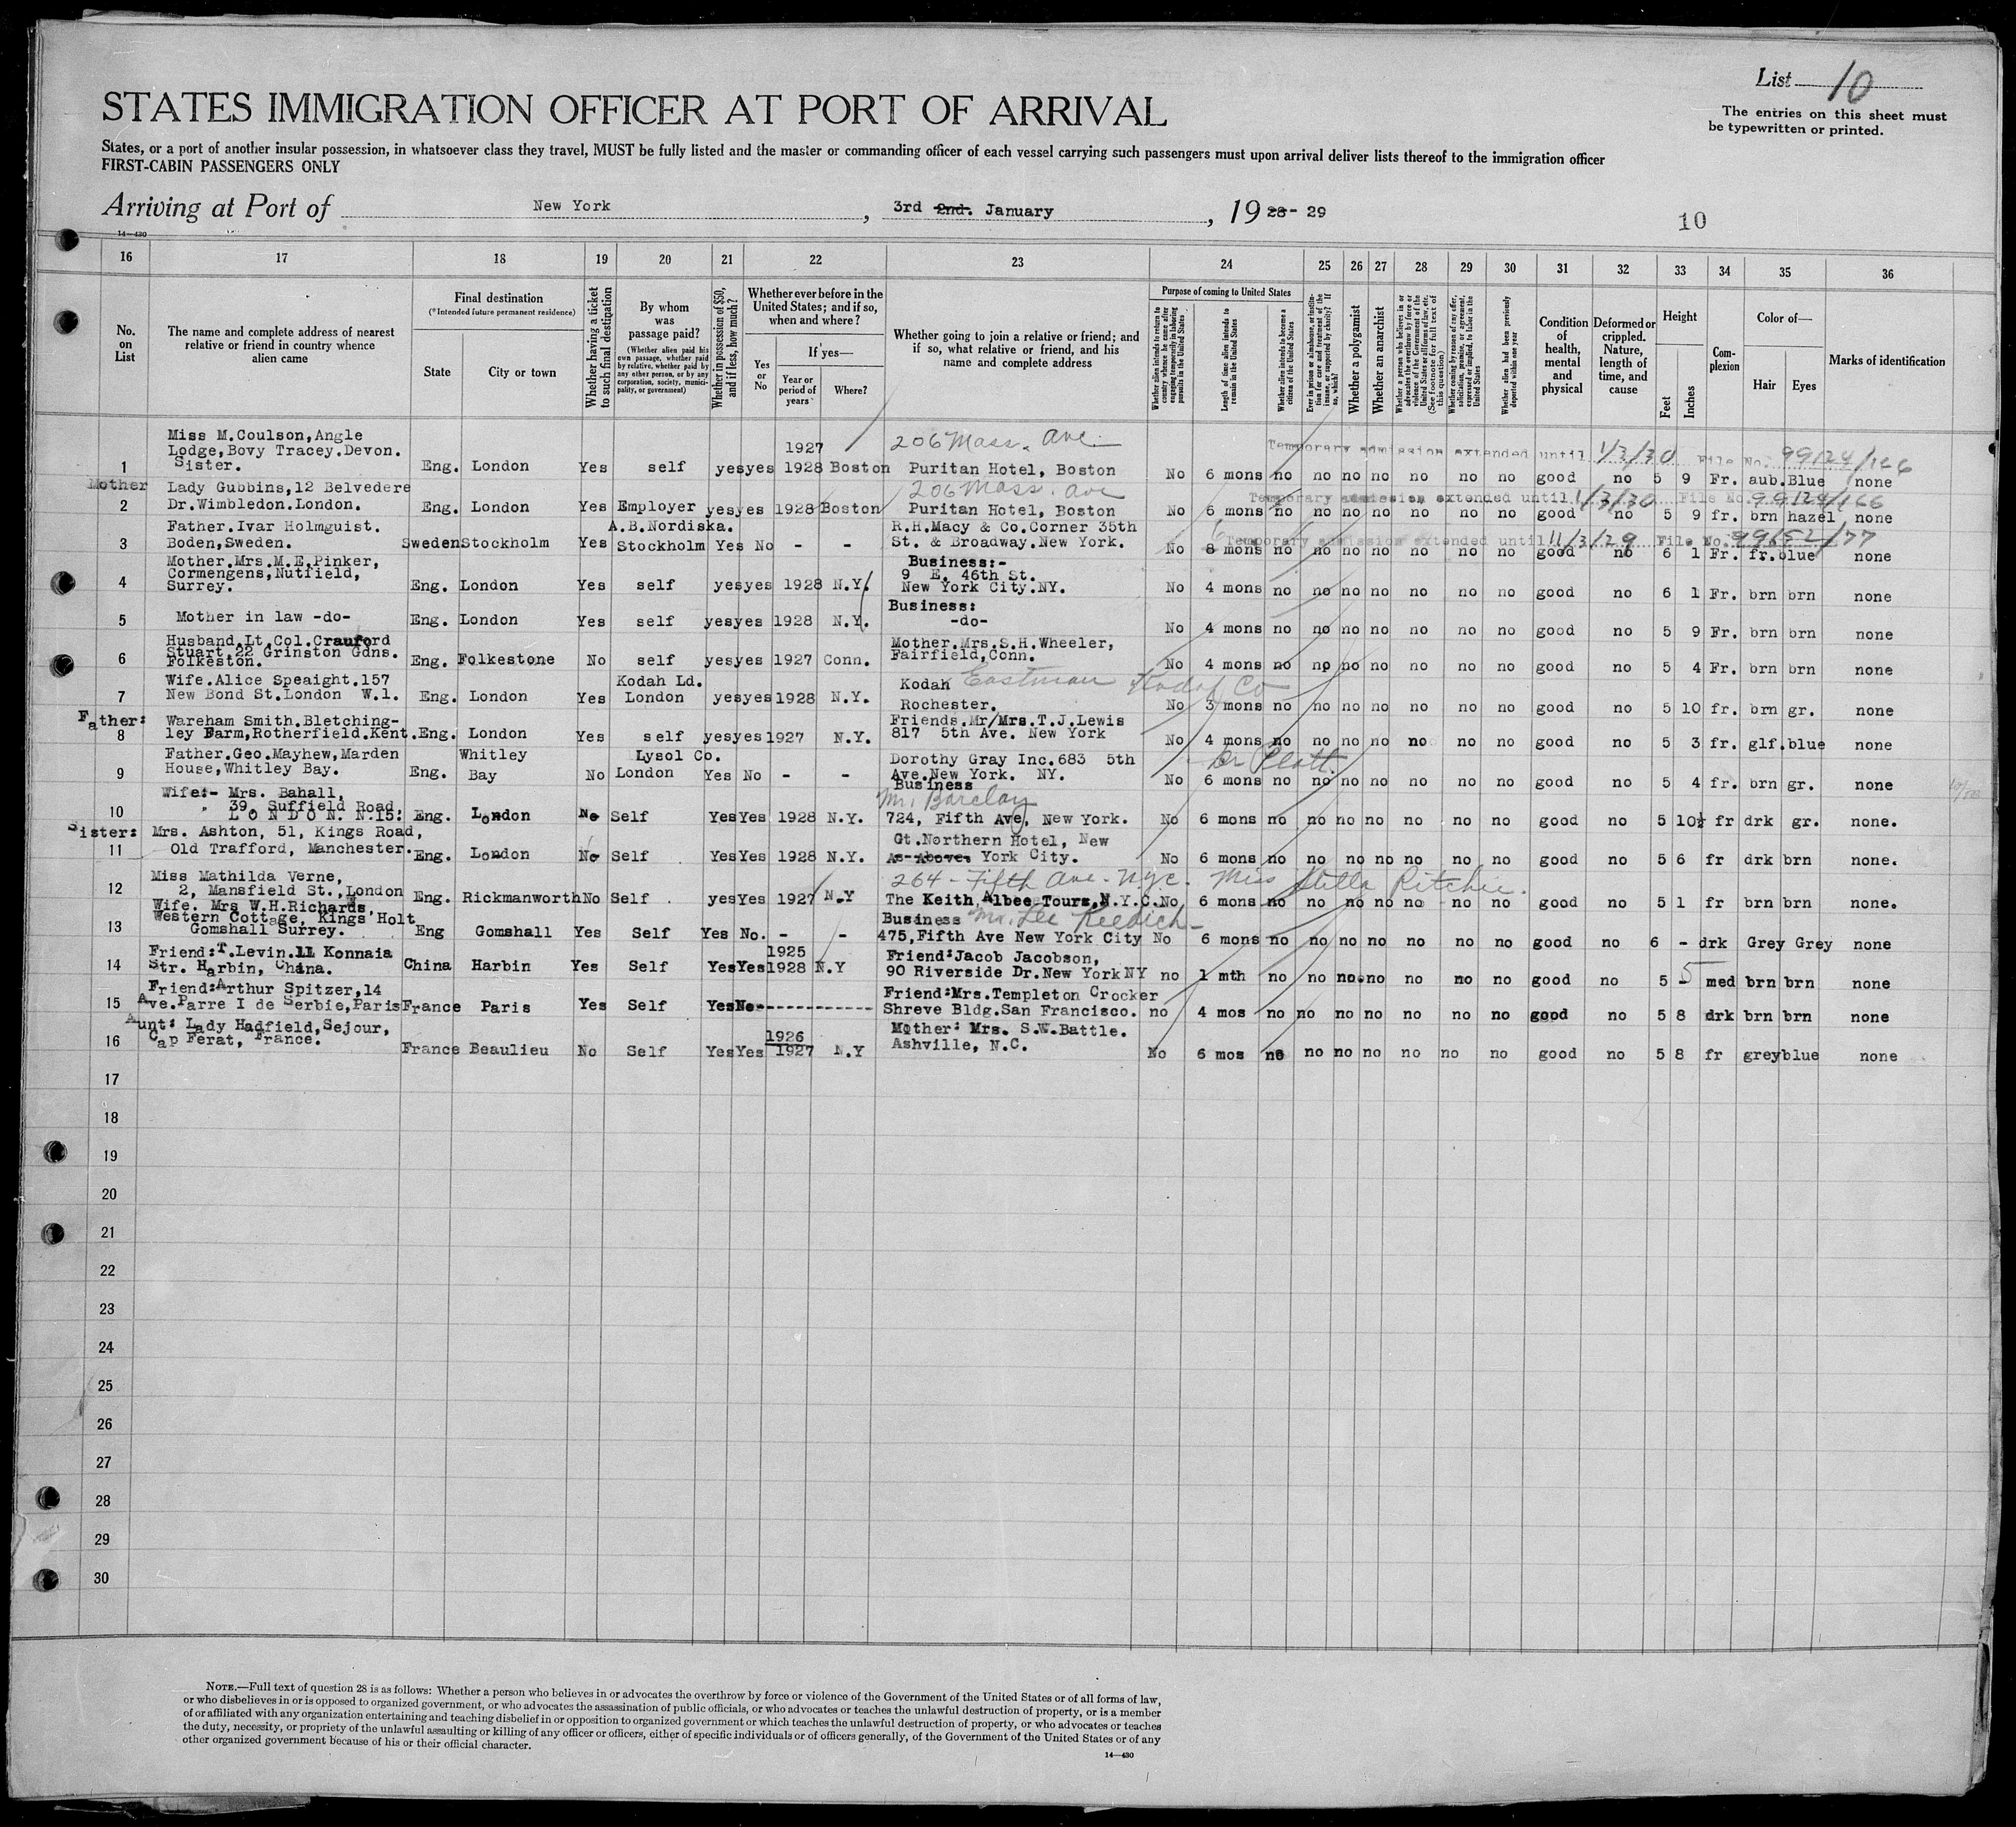 List 10
The entries on this sheet must
be typewritten or printed.
STATES IMMIGRATION OFFICER AT PORT OF ARRIVAL
States, or a port of another insular possession, in whatsoever class they travel, MUST be fully listed and the master or commanding officer of each vessel carrying such passengers must upon arrival deliver lists thereof to the immigration officer
FIRST-CABIN PASSENGERS ONLY
Arriving at Port of New York, 3rd 2nd. January, 19 28- 29
10
14—430
16 17 18 19 20 21 22 23 24 25 26 27 28 29 30 31 32 33 34 35 36
No. on List
The name and complete address of nearest relative or friend in country whence alien came
Final destination
(*Intended future permanent residence)
State City or town
Whether having a ticket to such final destination
By whom was passage paid?
(Whether alien paid his own passage, whether paid by relative, whether paid by any other person, or by any corporation, society, municipality, or government)
Whether in possession of $50, and if less, how much?
Whether ever before in the United States; and if so, when and where?
Yes or No
If yes—
Year or period of years
Where?
Whether going to join a relative or friend; and if so, what relative or friend, and his name and complete address
Purpose of coming to United States
Whether alien intends to return to country whence he came after engaging temporarily in laboring pursuits in the United States
Length of time alien intends to remain in the United States
Whether alien intends to become a citizen of the United States
Ever in prison or almshouse, or institution for care and treatment of the insane, or supported by charity? If so, which?
Whether a polygamist
Whether an anarchist
Whether a person who believes in or advocates the overthrow by force or violence of the Government of the United States or all forms of law, etc. (See footnote for full text of this question)
Whether coming by reason of any offer, solicitation, promise, or agreement, expressed or implied, to labor in the United States
Whether alien had been previously deported within one year
Condition of health, mental and physical
Deformed or crippled. Nature, length of time, and cause
Height
Feet Inches
Complexion
Color of—
Hair Eyes
Marks of identification
Miss M.Coulson,Angle
Lodge,Bovy Tracey.Devon.
1 Sister. Eng. London Yes self yes yes 1927 1928 Boston 206 Mass. Ave. Puritan Hotel, Boston No 6 mons no no no no no no no good no 5 9 Fr. aub. Blue none
Temporary admission extended until 1/3/30 File No. 99124/166
Mother Lady Gubbins,12 Belvedere
2 Dr.Wimbledon.London. Eng. London Yes Employer yes yes 1928 Boston 206 Mass. Ave Puritan Hotel, Boston No 6 mons no no no no no no no good no 5 9 fr. brn hazel none
Temporary admission extended until 1/3/30 File No. 99124/166
Father.Ivar Holmguist.
3 Boden,Sweden. Sweden Stockholm Yes A.B.Nordiska. Stockholm Yes No - - R.H.Macy & Co.Corner 35th St. & Broadway.New York. No 8 6 mons no no no no no no no good no 6 1 Fr. fr. blue none
Temporary admission extended until 11/3/29 File No. 99652/77
Mother.Mrs.M.E.Pinker,
Cormengens,Nutfield,
4 Surrey. Eng. London Yes self yes yes 1928 N.Y. Business:- 9 E. 46th St. New York City.NY. No 4 mons no no no no no no no good no 6 1 Fr. brn brn none
5 Mother in law -do- Eng. London Yes self yes yes 1928 N.Y. Business: -do- No 4 mons no no no no no no no good no 5 9 Fr. brn brn none
Husband.Lt.Col.Crauford
Stuart.22 Grinston Gdns.
6 Folkeston. Eng. Folkestone No self yes yes 1927 Conn. Mother.Mrs.S.H.Wheeler, Fairfield,Conn. No 4 mons no no no no no no no good no 5 4 Fr. brn brn none
Wife.Alice Speaight.157
7 New Bond St.London W.1. Eng. London Yes Kodah Ld. London yes yes 1928 N.Y. Kodah Eastman Kodak Co Rochester. No 3 mons no no no no no no no good no 5 10 fr. brn gr. none
Father: Wareham Smith.Bletching-
8 ley Farm,Rotherfield.Kent. Eng. London Yes self yes yes 1927 N.Y. Friends.Mr/Mrs.T.J.Lewis 817 5th Ave. New York No 4 mons no no no no no no no good no 5 3 fr. glf. blue none
Father.Geo.Mayhew,Marden
9 House,Whitley Bay. Eng. Whitley Bay No Lysol Co. London Yes No - - Dorothy Gray Inc.683 5th Ave.New York. NY. No 6 mons no no no no no no no good no 5 4 fr. brn gr. none
Wife:- Mrs. Bahall,
" 39, Suffield Road,
10 LONDON. N.15: Eng. London No Self Yes Yes 1928 N.Y. Business Mr. Barclay 724, Fifth Ave, New York. No 6 mons no no no no no no no good no 5 10½ fr drk gr. none.
Sister: Mrs. Ashton, 51, Kings Road,
11 Old Trafford, Manchester. Eng. London No Self Yes Yes 1928 N.Y. Gt.Northern Hotel, New As Above. York City. No 6 mons no no no no no no no good no 5 6 fr drk brn none.
Miss Mathilda Verne,
12 2, Mansfield St., London Eng. Rickmanworth No Self yes Yes 1927 N.Y 264 - Fifth Ave - N.Y.C. Miss Stella Ritchie. The Keith,Albee Tours,N.Y.C. No 6 mons no no no no no no no good no 5 1 fr brn brn none.
Wife. Mrs W.H.Richards,
Western Cottage, Kings Holt
13 Gomshall Surrey. Eng Gomshall Yes Self Yes No. - - Business Mr. Lee Keedick - 475,Fifth Ave New York City No 6 mons no no no no no no no good no 6 - drk Grey Grey none
Friend:T.Levin.11 Konnaia
14 Str. Harbin, China. China Harbin Yes Self Yes Yes 1925 1928 N.Y Friend:Jacob Jacobson, 90 Riverside Dr.New York NY no 1 mth no no no no no no no good no 5 - 5 med brn brn none
Friend:Arthur Spitzer,14
15 Ave.Parre I de Serbie,Paris France Paris Yes Self Yes No------------- Friend:Mrs.Templeton Crocker Shreve Bldg.San Francisco. no 4 mos no no no no no no no good no 5 8 drk brn brn none
Aunt: Lady Hadfield,Sejour,
16 Cap Ferat, France. France Beaulieu No Self Yes Yes 1926 1927 N.Y Mother: Mrs. S.W.Battle. Ashville, N.C. No 6 mos no no no no no no no good no 5 8 fr grey blue none
17
18
19
20
21
22
23
24
25
26
27
28
29
30
NOTE.—Full text of question 28 is as follows: Whether a person who believes in or advocates the overthrow by force or violence of the Government of the United States or of all forms of law,
or who disbelieves in or is opposed to organized government, or who advocates the assassination of public officials, or who advocates or teaches the unlawful destruction of property, or is a member
of or affiliated with any organization entertaining and teaching disbelief in or opposition to organized government or which teaches the unlawful destruction of property, or who advocates or teaches
the duty, necessity, or propriety of the unlawful assaulting or killing of any officer or officers, either of specific individuals or of officers generally, of the Government of the United States or of any
other organized government because of his or their official character.
14—430